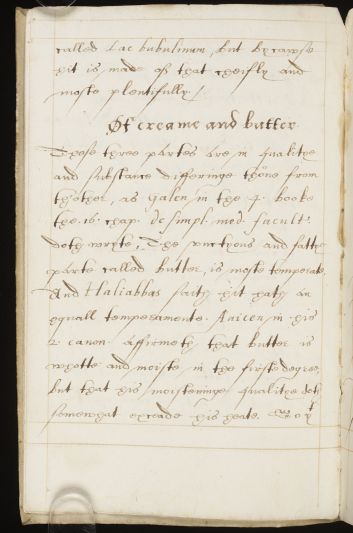 called Lac bubulinum, but bycawse
hit is made of that cheifly and
moste plentifully /
Of creame and butter
Those three partes are in qualitye
and substance differinge thone from
thother, as Galen in the 4. booke
the .16. chap. de simpl. med. facult.
doth wryte, The unctyous and fatty
parte called butter, is moste temperate
And Haliabbas saith hit hath an
equall temperamente. Avicen in his
2 canon affirmeth that butter is
whotte and moiste in the firste degree,
but that his moisteninge qualitye doth
somewhat exceade his heate.